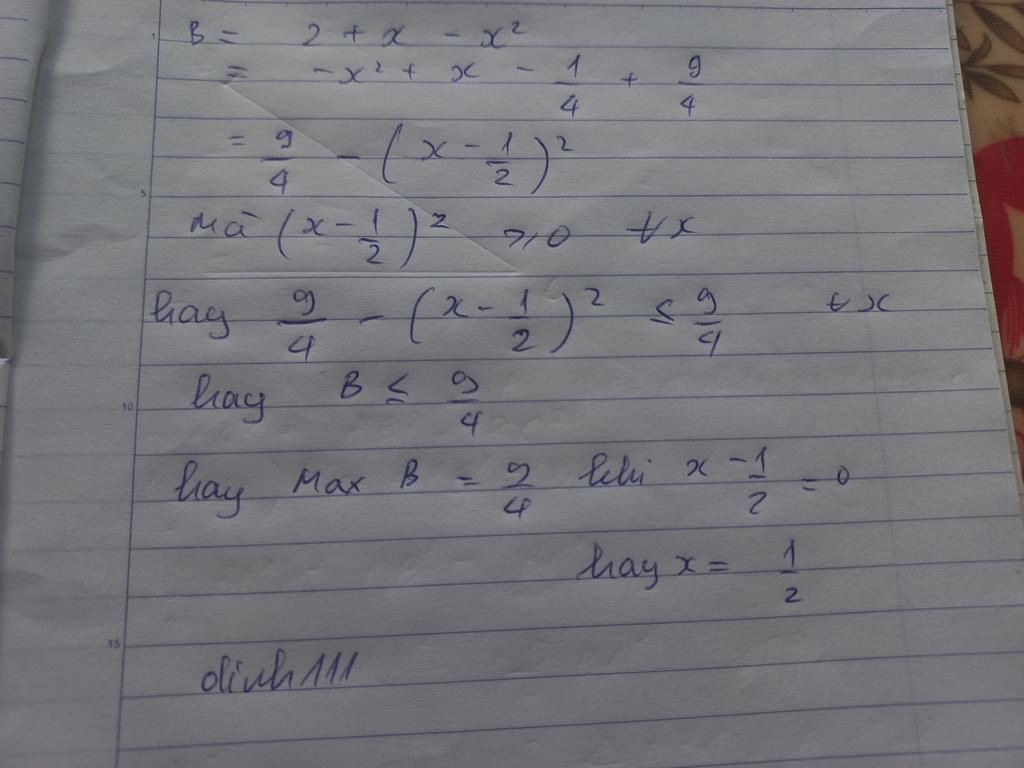 B = 2 + x - x²
= -x² + x - 1/4 + 9/4
= 9/4 - (x - 1/2)²
Mà (x - 1/2)² ≥ 0 ∀x
hay 9/4 - (x - 1/2)² ≤ 9/4 ∀x
hay B ≤ 9/4
hay Max B = 9/4 khi x - 1/2 = 0
hay x = 1/2
dinh111
1
5
10
15